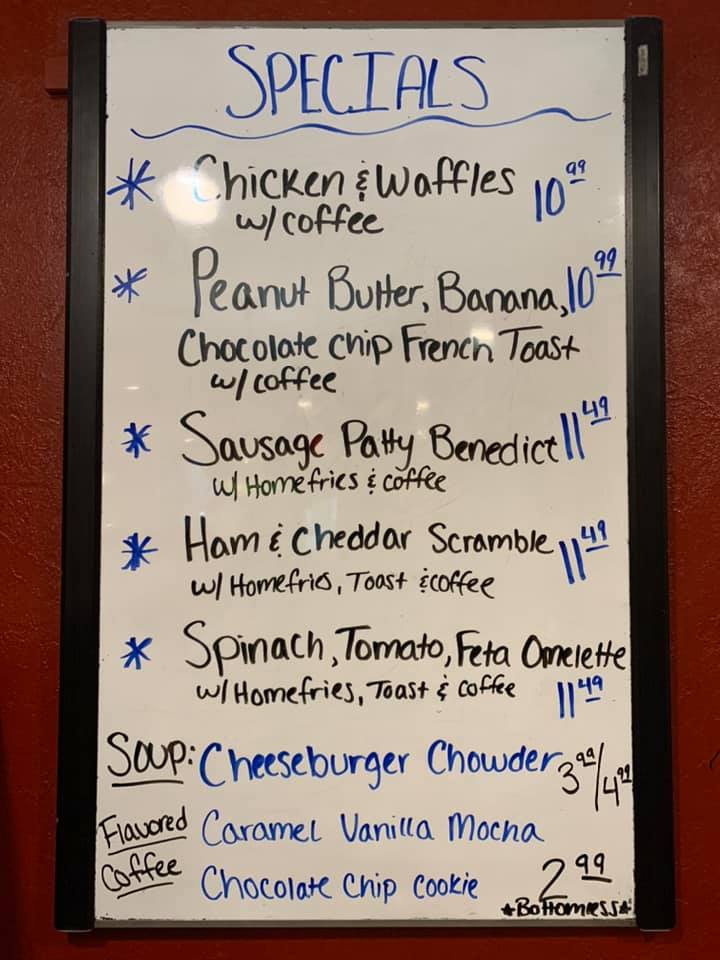 SPECIALS
* Chicken & Waffles 10.99
w/ coffee
* Peanut Butter, Banana, 10.99
Chocolate chip French Toast
w/ coffee
* Sausage Patty Benedict 11.49
w/ Homefries & coffee
* Ham & Cheddar Scramble 11.49
w/ Homefries, Toast & coffee
* Spinach, Tomato, Feta Omelette
w/ Homefries, Toast & coffee 11.49
Soup: Cheeseburger Chowder 3.99/4.99
Flavored Caramel Vanilla Mocha
Coffee Chocolate Chip Cookie 2.99
*Bottomless*